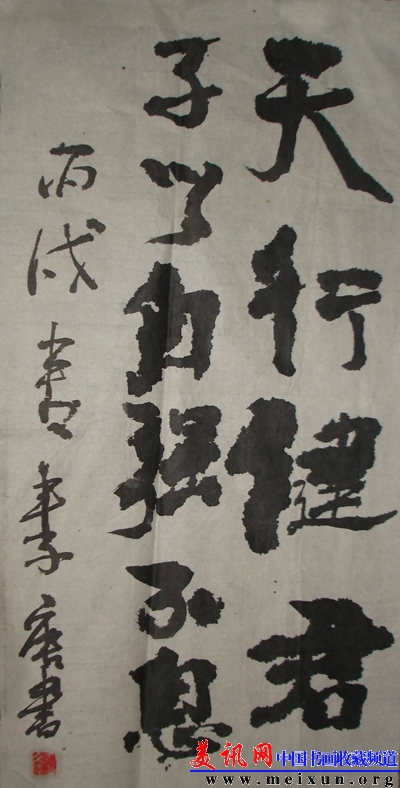 天行健君
子以自强不息
丙戌 書
美讯网 中国书画收藏频道
www.meixun.org